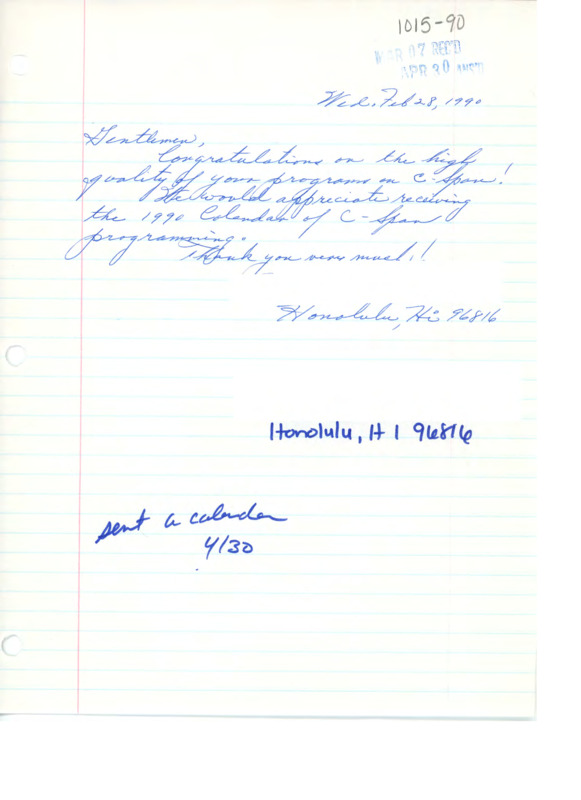 1015-90
MAR 07 REC'D
APR 30 ANS'D
Wed. Feb 28, 1990
Gentlemen,
Congratulations on the high
quality of your programs on C-Span!
We would appreciate receiving
the 1990 Calendar of C-Span
programming.
Thank you very much!!
Honolulu, Hi 96816
Honolulu, HI 96816
sent a calender
4/30